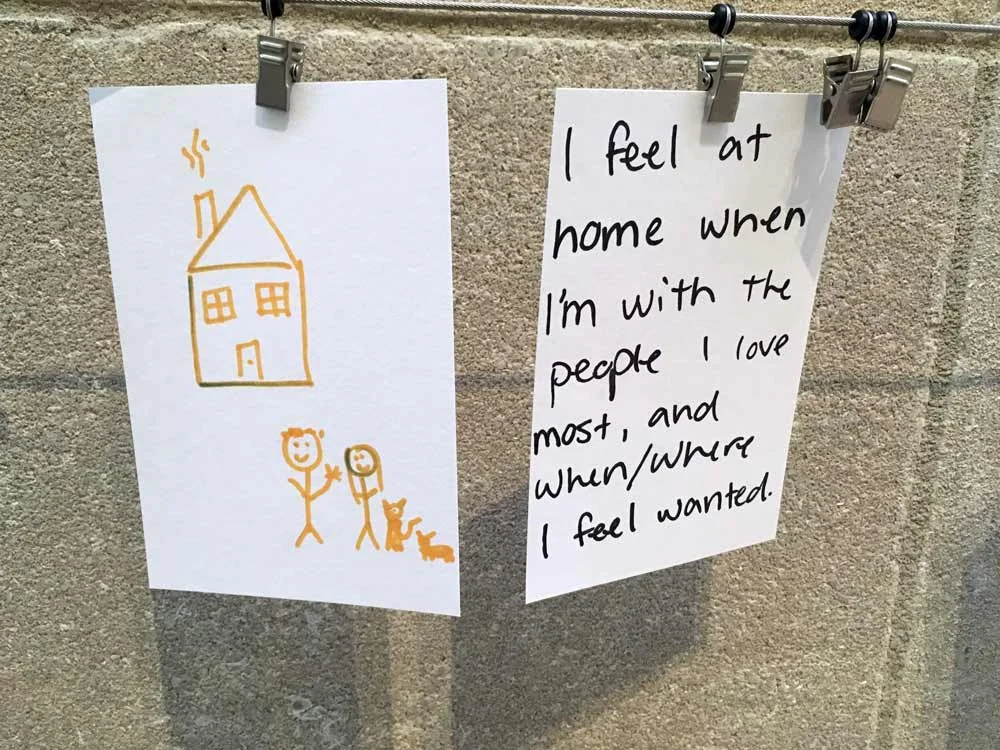 I feel at
home when
I'm with the
people I love
most, and
when/where
I feel wanted.